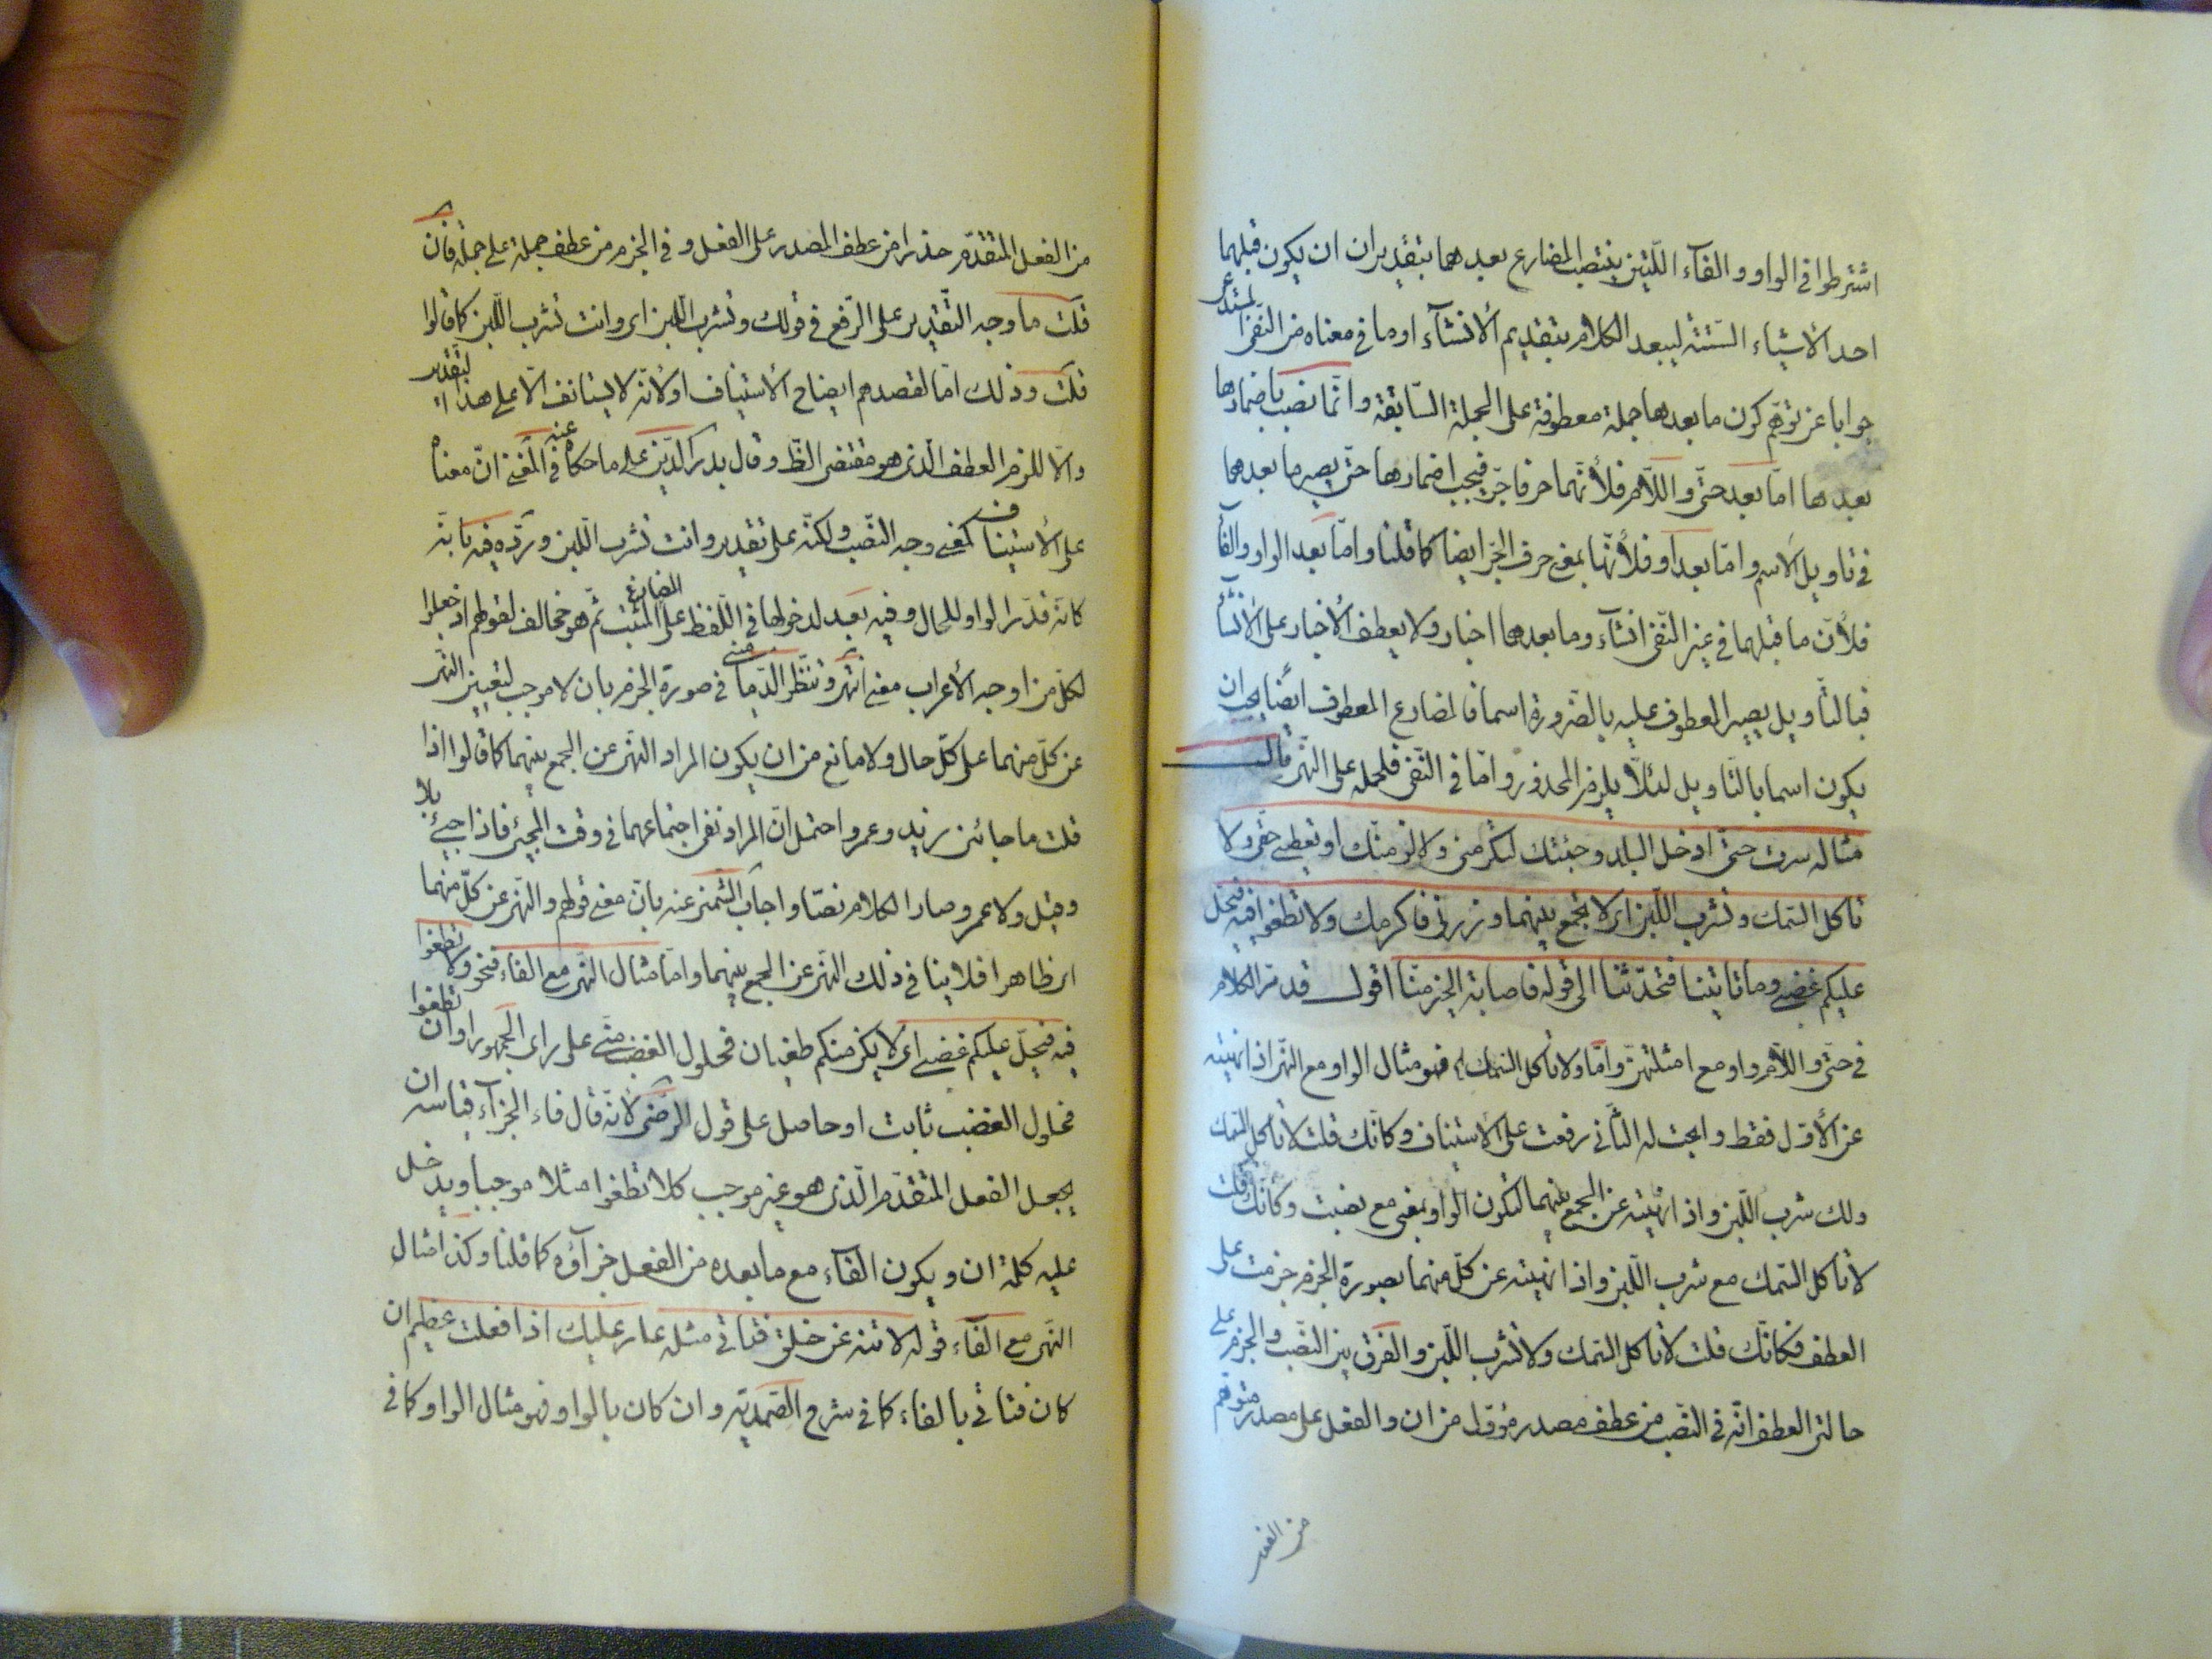 اشترطوا فى الواو والفآء اللّتين ينتصب المضارع بعدهما بتقديران ان يكون قبلهما
احد الأشياء السّتّة ليبعد الكلام بتقديم الأنشآء اوما فى معناه من النّفى المستدعى
جوابا عن توهّم كون ما بعدها جملة معطوفة على الجملة السّابقة وانّما نصب باضمارها
بعدها امّا بعد حتّى واللّام فلأنّهما حرفا جرّ فيجب اضمارها حتّى يصير ما بعدهما
فى تاويل الاسم وامّا بعد او فلأنّها بمعنى حرف الجرّ ايضا كما قلنا وامّا بعد الواو والفآء
فلأنّ ما قبلهما فى غير النّفى انشآء وما بعدهما اخبار ولا يعطف الأخبار على الأنشآء
فبالتّاويل يصير المعطوف عليه بالضّرورة اسما فالمضارع المعطوف ايضًا يجب ان
يكون اسما بالتّاويل لئلّا يلزم المحذور وامّا فى النّفى فلحمله على النّهى قال
مثاله سرت حتّى ادخل البلد وجئتك لتكرمنى ولالزمنّك او تعطينى حقّى ولا
تاكل السّمك وتشرب اللّبن اى لا تجمع بينهما وزرنى فاكرمك ولا تطغوا فيه فيحلّ
عليكم غضبى وما تاتينا فتحدّثنا الى قوله فاصابة الخير منّا اقول قد مرّ الكلام
فى حتّى واللّام واو مع امثلتهنّ وامّا ولا تاكل السّمك فهو مثال الواو مع النّهى اذا نهيته
عن الأوّل فقط وابحت له الثّانى رفعت على الاستيناف وكانّك قلت لا تاكل السّمك
ولك شرب اللّبن واذا نهيته عن الجمع بينهما لتكون الواو بمعنى مع نصبت وكانّك قلت
لا تاكل السّمك مع شرب اللّبن واذا نهيته عن كلّ منهما بصورة الجزم جزمت على
العطف فكانّك قلت لا تاكل السّمك ولا تشرب اللّبن والفرق بين النّصب والجزم على
حالتى العطف انّه فى النّصب من عطف مصدر مؤوّل من ان والفعل على مصدر متوهّم
من الفعل
من الفعل المتقدّم حذرا من عطف المصدر على الفعل وفى الجزم من عطف جملة على جملة فان
قلت ما وجه التّقدير على الرّفع فى قولك وتشرب اللّبن اى وانت تشرب اللّبن كما قالوا
قلت وذلك امّا لقصدهم ايضاح الأستيناف او لأنّه لا يستانف الّا على هذا التّقدير
والّا للزم العطف الّذى هو مقتضى الظّ وقال بدر الدّين على ما حكاه عنه فى المغنى انّ معناه
على الأستيناف كمعنى وجه النّصب ولكنّه على تقدير وانت تشرب اللّبن وردّه فيه بانّه
كانّه قدّر الواو للحال وفيه بعد لدخولها فى اللّفظ على المضارع المثبت ثمّ هو مخالف لقولهم اذ جعلوا
لكلّ من اوجه الأعراب معنى انتهى وتنظّر الدّمامينى فى صورة الجزم بان لا موجب لتعيين النّهى
عن كلّ منهما على كلّ حال ولا مانع من ان يكون المراد النّهى عن الجمع بينهما كما قالوا اذا
قلت ما جائنى زيد وعمرو احتمل انّ المراد نفى اجتماعهما فى وقت المجئ فاذا جيئ بلا
وقيل ولا عمرو صار الكلام نصّا واجاب الشّمنى عنه بانّ معنى قولهم والنّهى عن كلّ منهما
اى ظاهرا فلا ينافى ذلك النّهى عن الجمع بينهما وامّا مثال النّهى مع الفاء فنحو ولا تطغوا
فيه فيحلّ عليكم غضبى اى لا يكن منكم طغيان فحلول الغضب منّى على راى الجمهور او ان تطغوا
فحلول الغضب ثابت او حاصل على قول الرّضى لأنّه قال فاء الجزآء قياسه ان
يجعل الفعل المتقدّم الّذى هو غير موجب كلا تطغوا مثلا موجبا ويدخل
عليه كلمة ان ويكون الفآء مع ما بعده من الفعل جزآؤه كما قلنا وكذا مثال
النّهى مع الفآء قوله لا تنه عن خلق فتاتى مثله عار عليك اذا فعلت عظيم ان
كان فتاتى بالفاء كما فى شرح الصّمديّة وان كان بالواو فهو مثال الواو كما فى